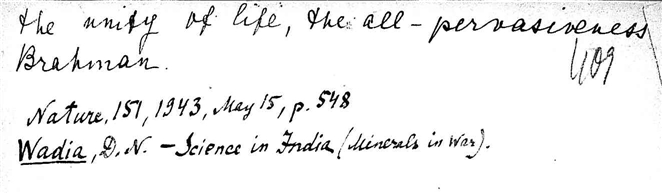 the unity of life, the all-pervasiveness
Brahman.
409
Nature, 151, 1943, May 15, p. 548
Wadia, D.N. - Science in India (Minerals in War).